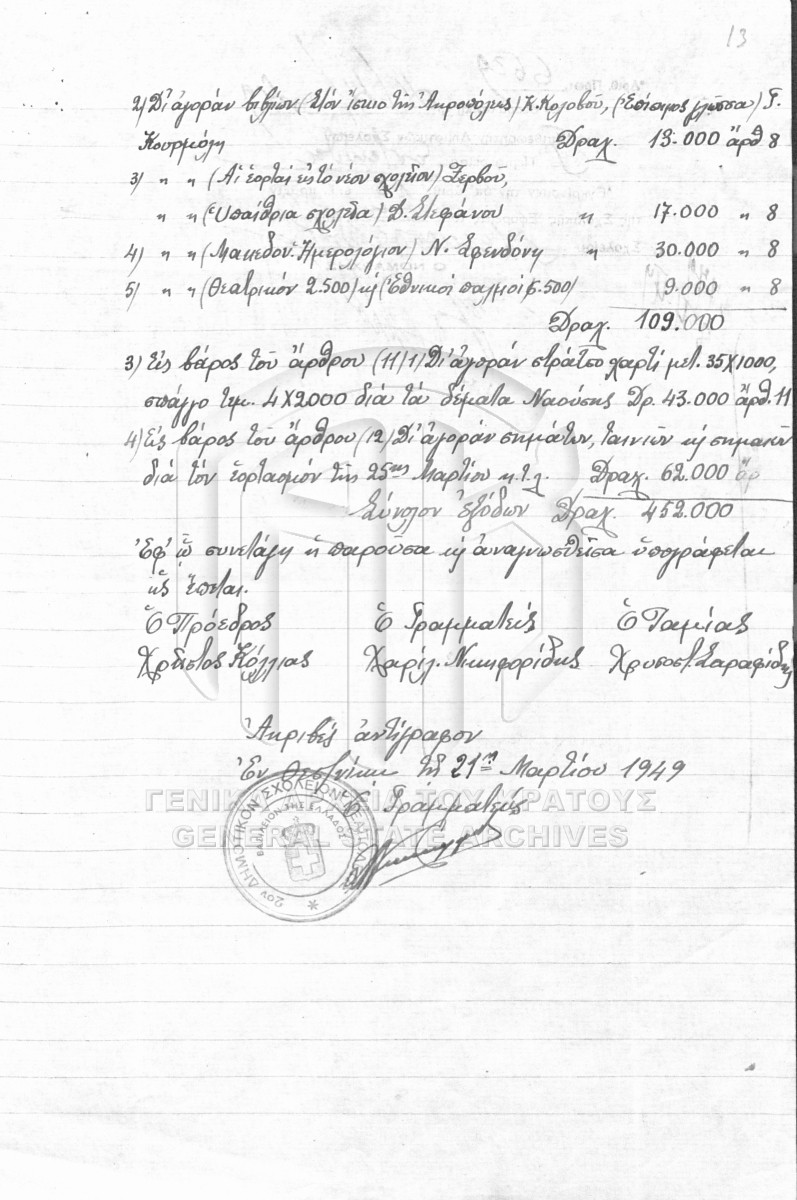 13
2) Δι' ἀγοράν βιβλίων (Στόν ἴσκιο τῆς Ἀκροπόλης) Κ. Κολοβοῦ, (Ἐπίσημος γλῶσσα) Γ.
Κουρμούλη Δραχ. 13.000 ἄρθ 8
3) " " (Αἱ ἑορταί εἰς τό νέον σχολεῖον) Ζερβοῦ,
" " (Ὑπαίθρια σχολεῖα) Δ. Στεφάνου " 17.000 " 8
4) " " (Μακεδον. Ἡμερολόγιον) Ν. Σφενδόνη " 30.000 " 8
5) " " (Θεατρικόν 2.500) κ (Ἐθνικοί παλμοί 6.500) 9.000 " 8
Δραχ. 109.000
3) Εἰς βάρος τοῦ ἄρθρου (11/1) Δι' ἀγοράν στράτσο χαρτί μετ. 35Χ1000,
σπάγγο τεμ. 4Χ2000 διά τά δέματα Ναούσης Δρ. 43.000 ἄρθ. 11
4) Εἰς βάρος τοῦ ἄρθρου (12) Δι' ἀγοράν σημάτων, ταινιῶν κ σημαιῶν
διά τόν ἑορτασμόν τῆς 25ης Μαρτίου κ.τ.λ. Δραχ. 62.000 ἄρ
Σύνολον ἐξόδων Δραχ. 452.000
Ἐφ' ᾧ συνετάγη ἡ παροῦσα κ ἀναγνωσθεῖσα ὑπογράφεται
ὡς ἕπεται.
Ὁ Πρόεδρος Ὁ Γραμματεύς Ὁ Ταμίας
Χρῆστος Κόλλιας Χαρίλ. Νικηφορίδης Χρυσοστ. Σαραφίδης
Ἀκριβές ἀντίγραφον
Ἐν Θεσ/νίκῃ τῇ 21ῃ Μαρτίου 1949
Ὁ Γραμματεύς
ΓΕΝΙΚΑ ΑΡΧΕΙΑ ΤΟΥ ΚΡΑΤΟΥΣ
GENERAL STATE ARCHIVES
2ον ΔΗΜΟΤΙΚΟΝ ΣΧΟΛΕΙΟΝ ΝΕΑΠΟΛΕΩΣ
ΒΑΣΙΛΕΙΟΝ ΤΗΣ ΕΛΛΑΔΟΣ